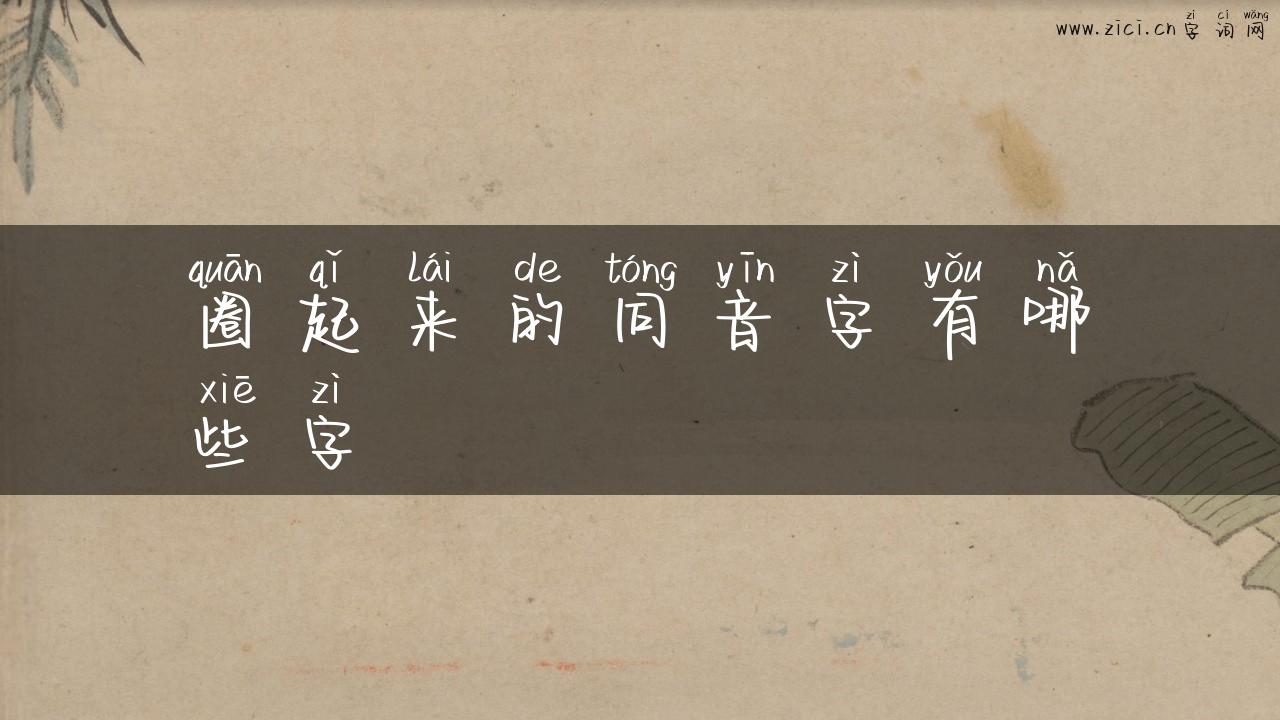 zì cí wǎng
www.zici.cn 字词网
quān qǐ lái de tóng yīn zì yǒu nǎ
圈起来的同音字有哪
xiē zì
些字